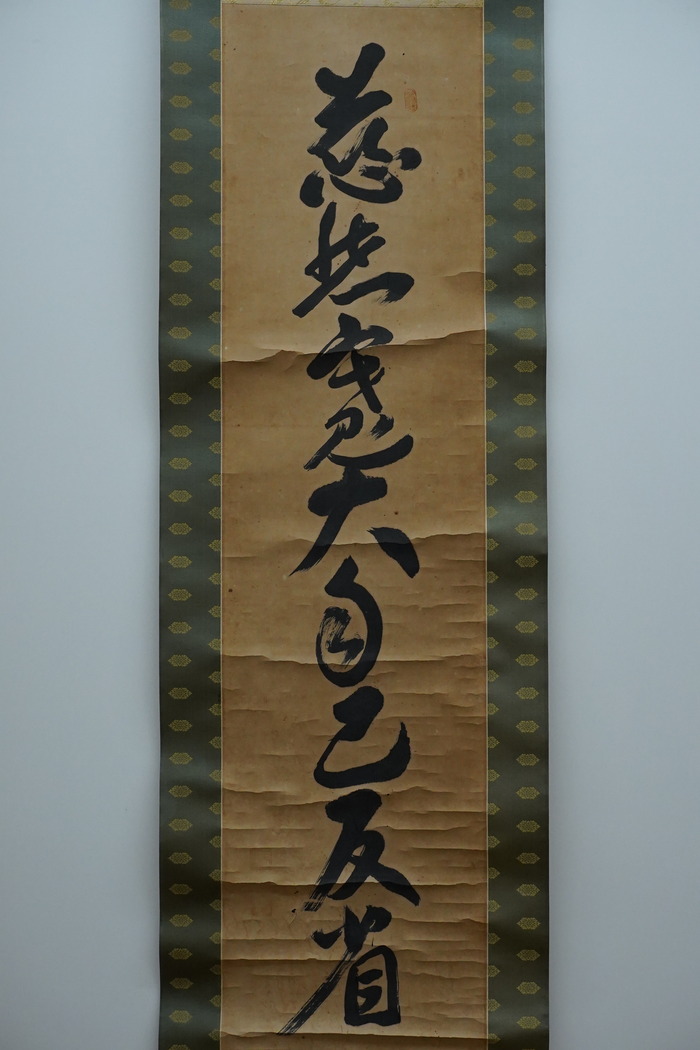 慈悲寛大自己反省